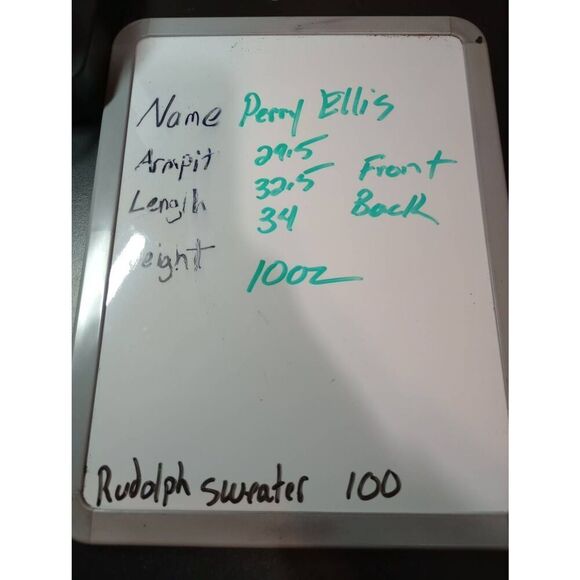 Name Perry Ellis
Armpit 29.5
Length 32.5 Front
34 Back
eight 10oz
Rudolph sweater 100